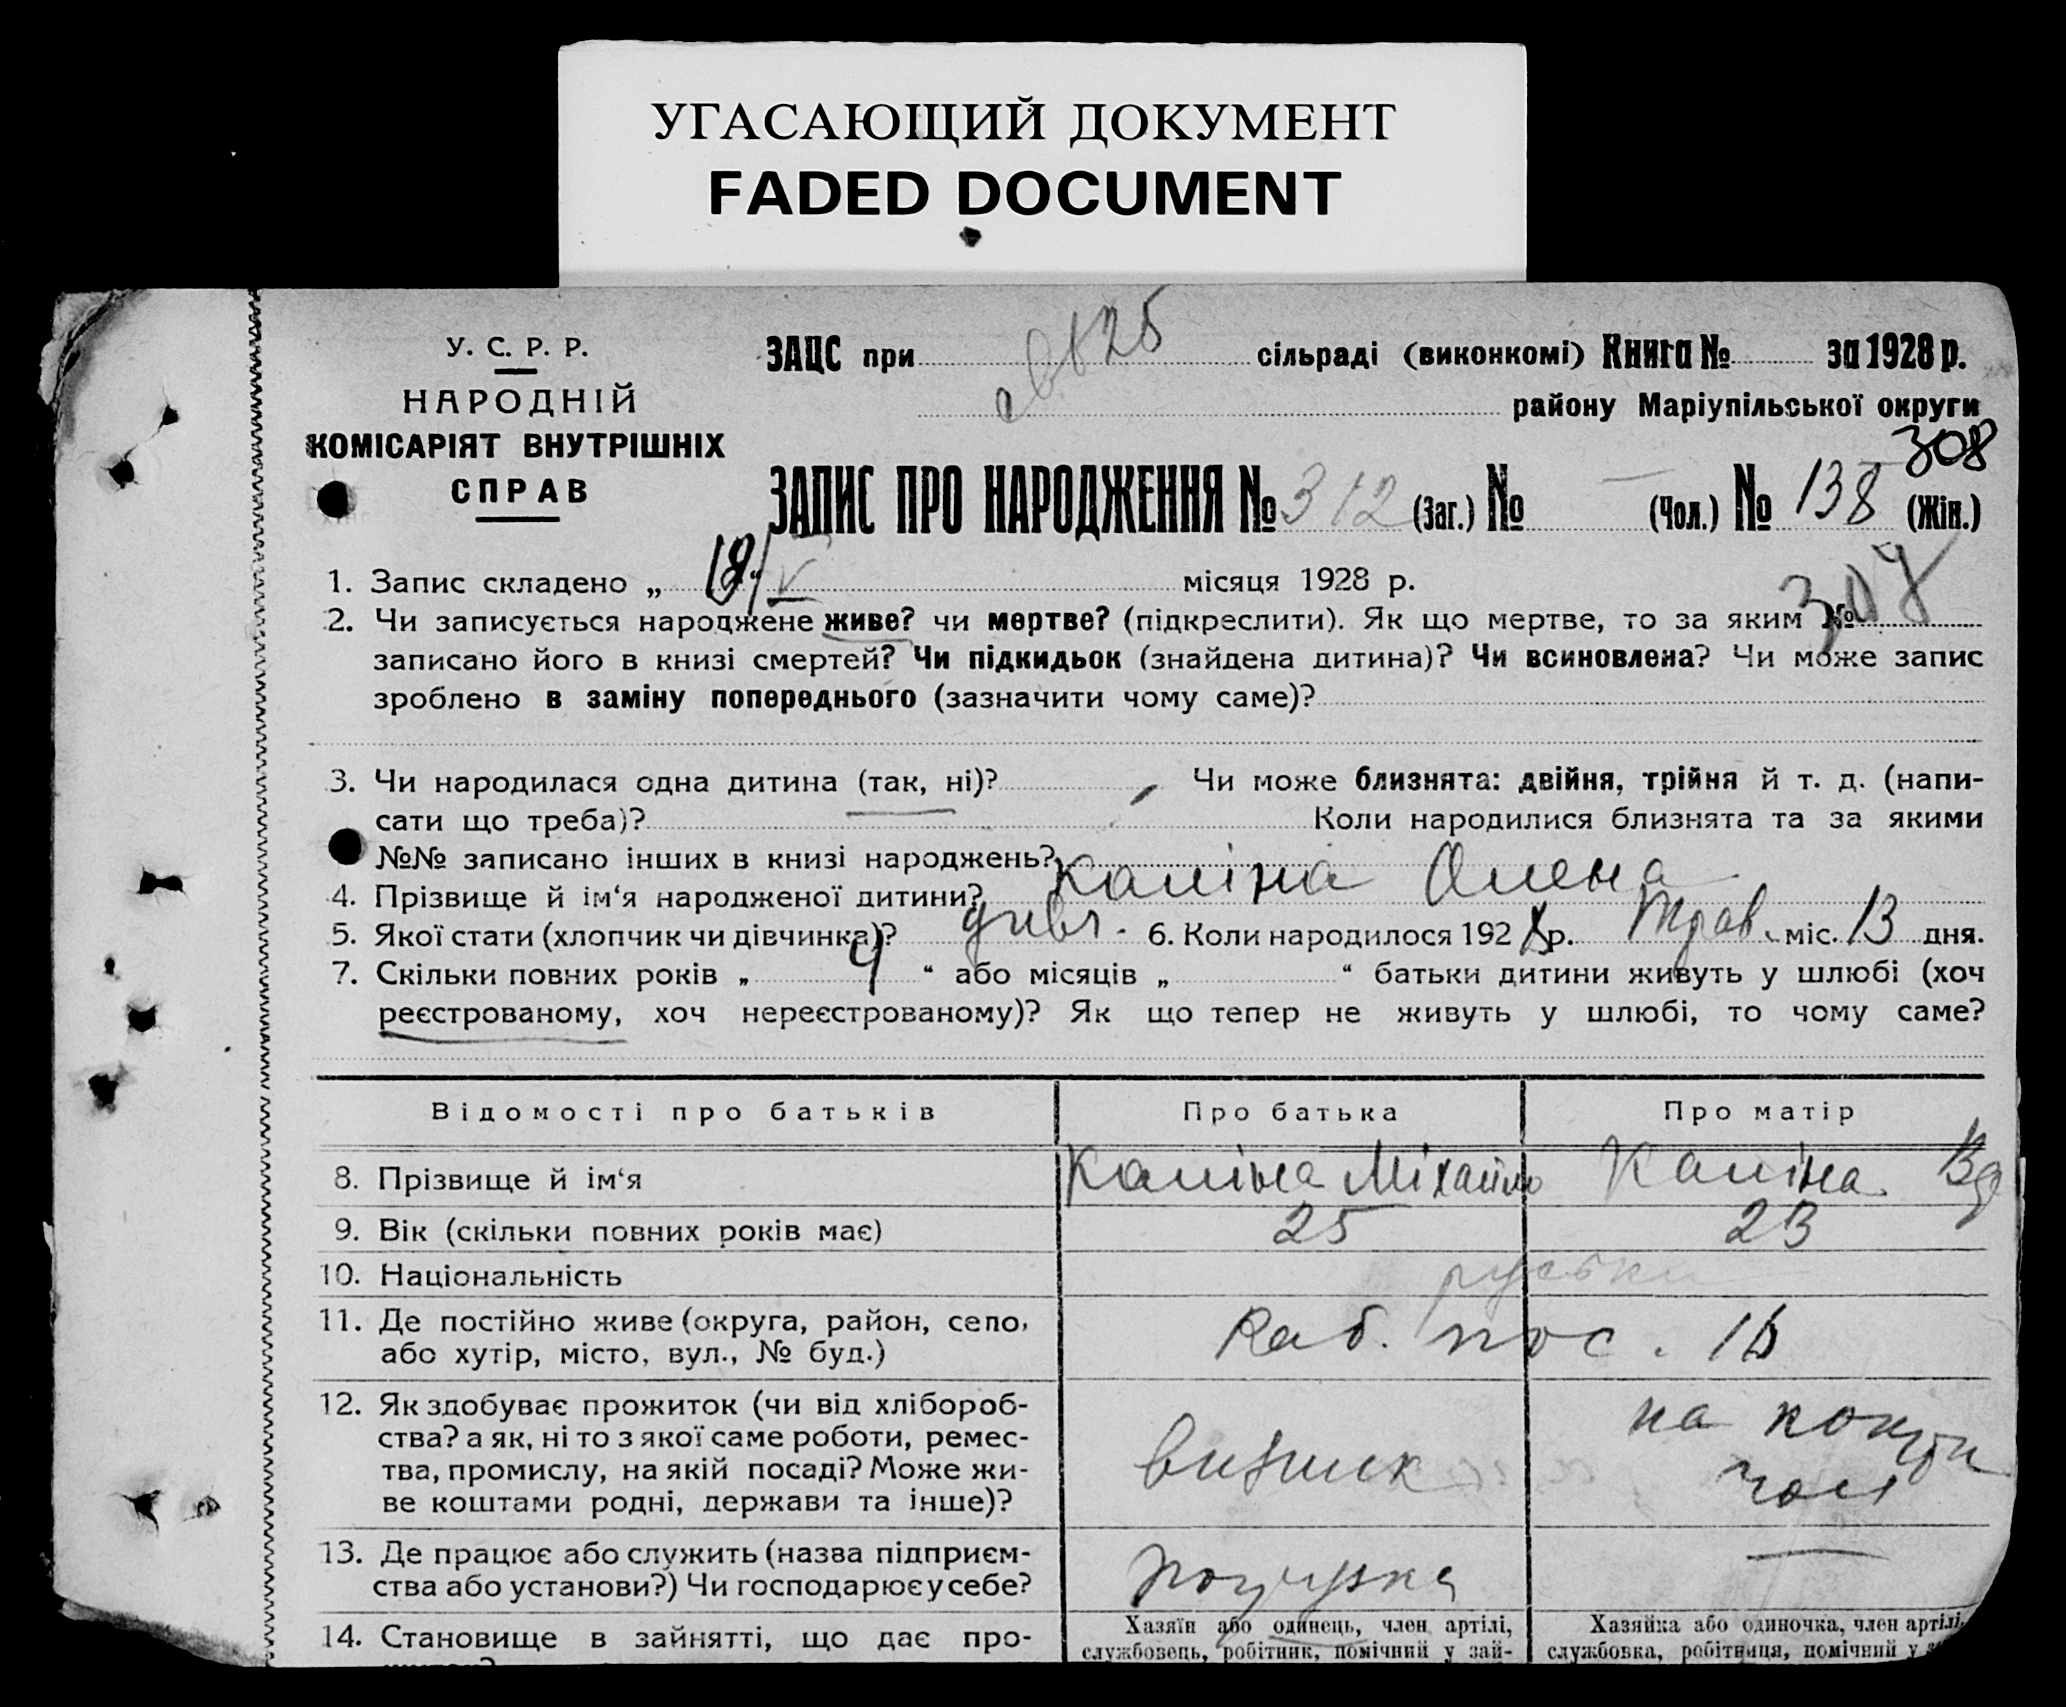 УГАСАЮЩИЙ ДОКУМЕНТ
FADED DOCUMENT
У. С. Р. Р.
НАРОДНІЙ
КОМІСАРІЯТ ВНУТРІШНІХ
СПРАВ
ЗАЦС при сільраді (виконкомі) Книга № за 1928 р.
району Маріупільської округи
308
ЗАПИС ПРО НАРОДЖЕННЯ № 312 (Заг.) № — (Чол.) № 138 (Жін.)
1. Запис складено „ 19/V місяця 1928 р.
307
2. Чи записується народжене живе? чи мертве? (підкреслити). Як що мертве, то за яким №
записано його в книзі смертей? Чи підкидьок (знайдена дитина)? Чи всиновлена? Чи може запис
зроблено в заміну попереднього (зазначити чому саме)?
3. Чи народилася одна дитина (так, ні)? Чи може близнята: двійня, трійня й т. д. (напи-
сати що треба)? Коли народилися близнята та за якими
№№ записано інших в книзі народжень?
4. Прізвище й ім'я народженої дитини? Каліна Олена
5. Якої стати (хлопчик чи дівчинка)? дивч. 6. Коли народилося 1928 р. Трав. міс. 13 дня.
7. Скільки повних років „ 4 “ або місяців „ “ батьки дитини живуть у шлюбі (хоч
реєстрованому, хоч нереєстрованому)? Як що тепер не живуть у шлюбі, то чому саме?
Відомості про батьків Про батька Про матір
8. Прізвище й ім'я Каліна Міхайло Каліна
9. Вік (скільки повних років має) 25 23
10. Національність руськи
11. Де постійно живе (округа, район, село,
або хутір, місто, вул., № буд.) Раб. пос.
12. Як здобуває прожиток (чи від хлібороб-
ства? а як, ні то з якої саме роботи, ремес-
тва, промислу, на якій посаді? Може жи-
ве коштами родні, держави та інше)? на
13. Де працює або служить (назва підприєм-
ства або установи?) Чи господарює у себе? —
14. Становище в зайнятті, що дає про- Хазяїн або одинець, член артілі, Хазяйка або одиночка, член артілі,
службовець, робітник, помічний у зай- службовка, робітниця, помічний у